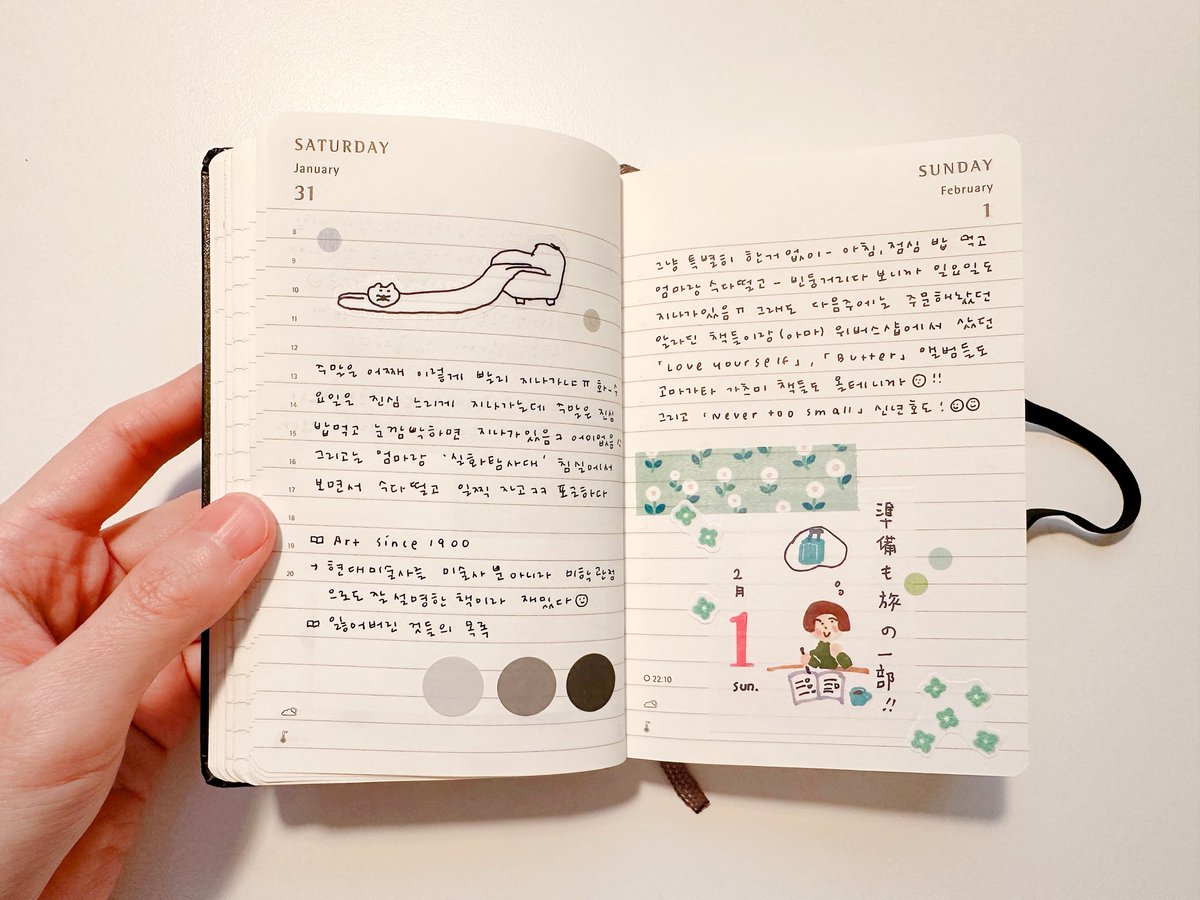 SATURDAY
January
31
8
9
10
11
12
13
주말은 어째 이렇게 빨리 지나가냐ㅠ 화~수
14
요일은 진심 느리게 지나가는데 주말은 진심
15
밥먹고 눈깜박하면 지나가있음ㅋ 어이없음
16
그리고는 엄마랑 '실화탐사대' 침실에서
17
보면서 수다떨고 일찍 자고ㅋㅋ 포근하다
18
19
Art since 1900
20
→ 현대미술사를 미술사 뿐 아니라 미학 관점
으로도 잘 설명한 책이라 재밌다
잃어버린 것들의 목록
SUNDAY
February
1
그냥 특별히 한거 없이- 아침, 점심 밥 먹고
엄마랑 수다떨고 - 빈둥거리다 보니까 일요일도
지나가있음ㅠ 그래도 다음주에는 주문해놨던
알라딘 책들이랑 (아마) 위버스샵에서 샀던
「Love yourself」, 「Butter」 앨범들도
고마가타 가츠미 책들도 올테니까 !!
그리고 「Never too small」 신년호도!
準備も旅の一部!!
2
月
1
sun.
22:10